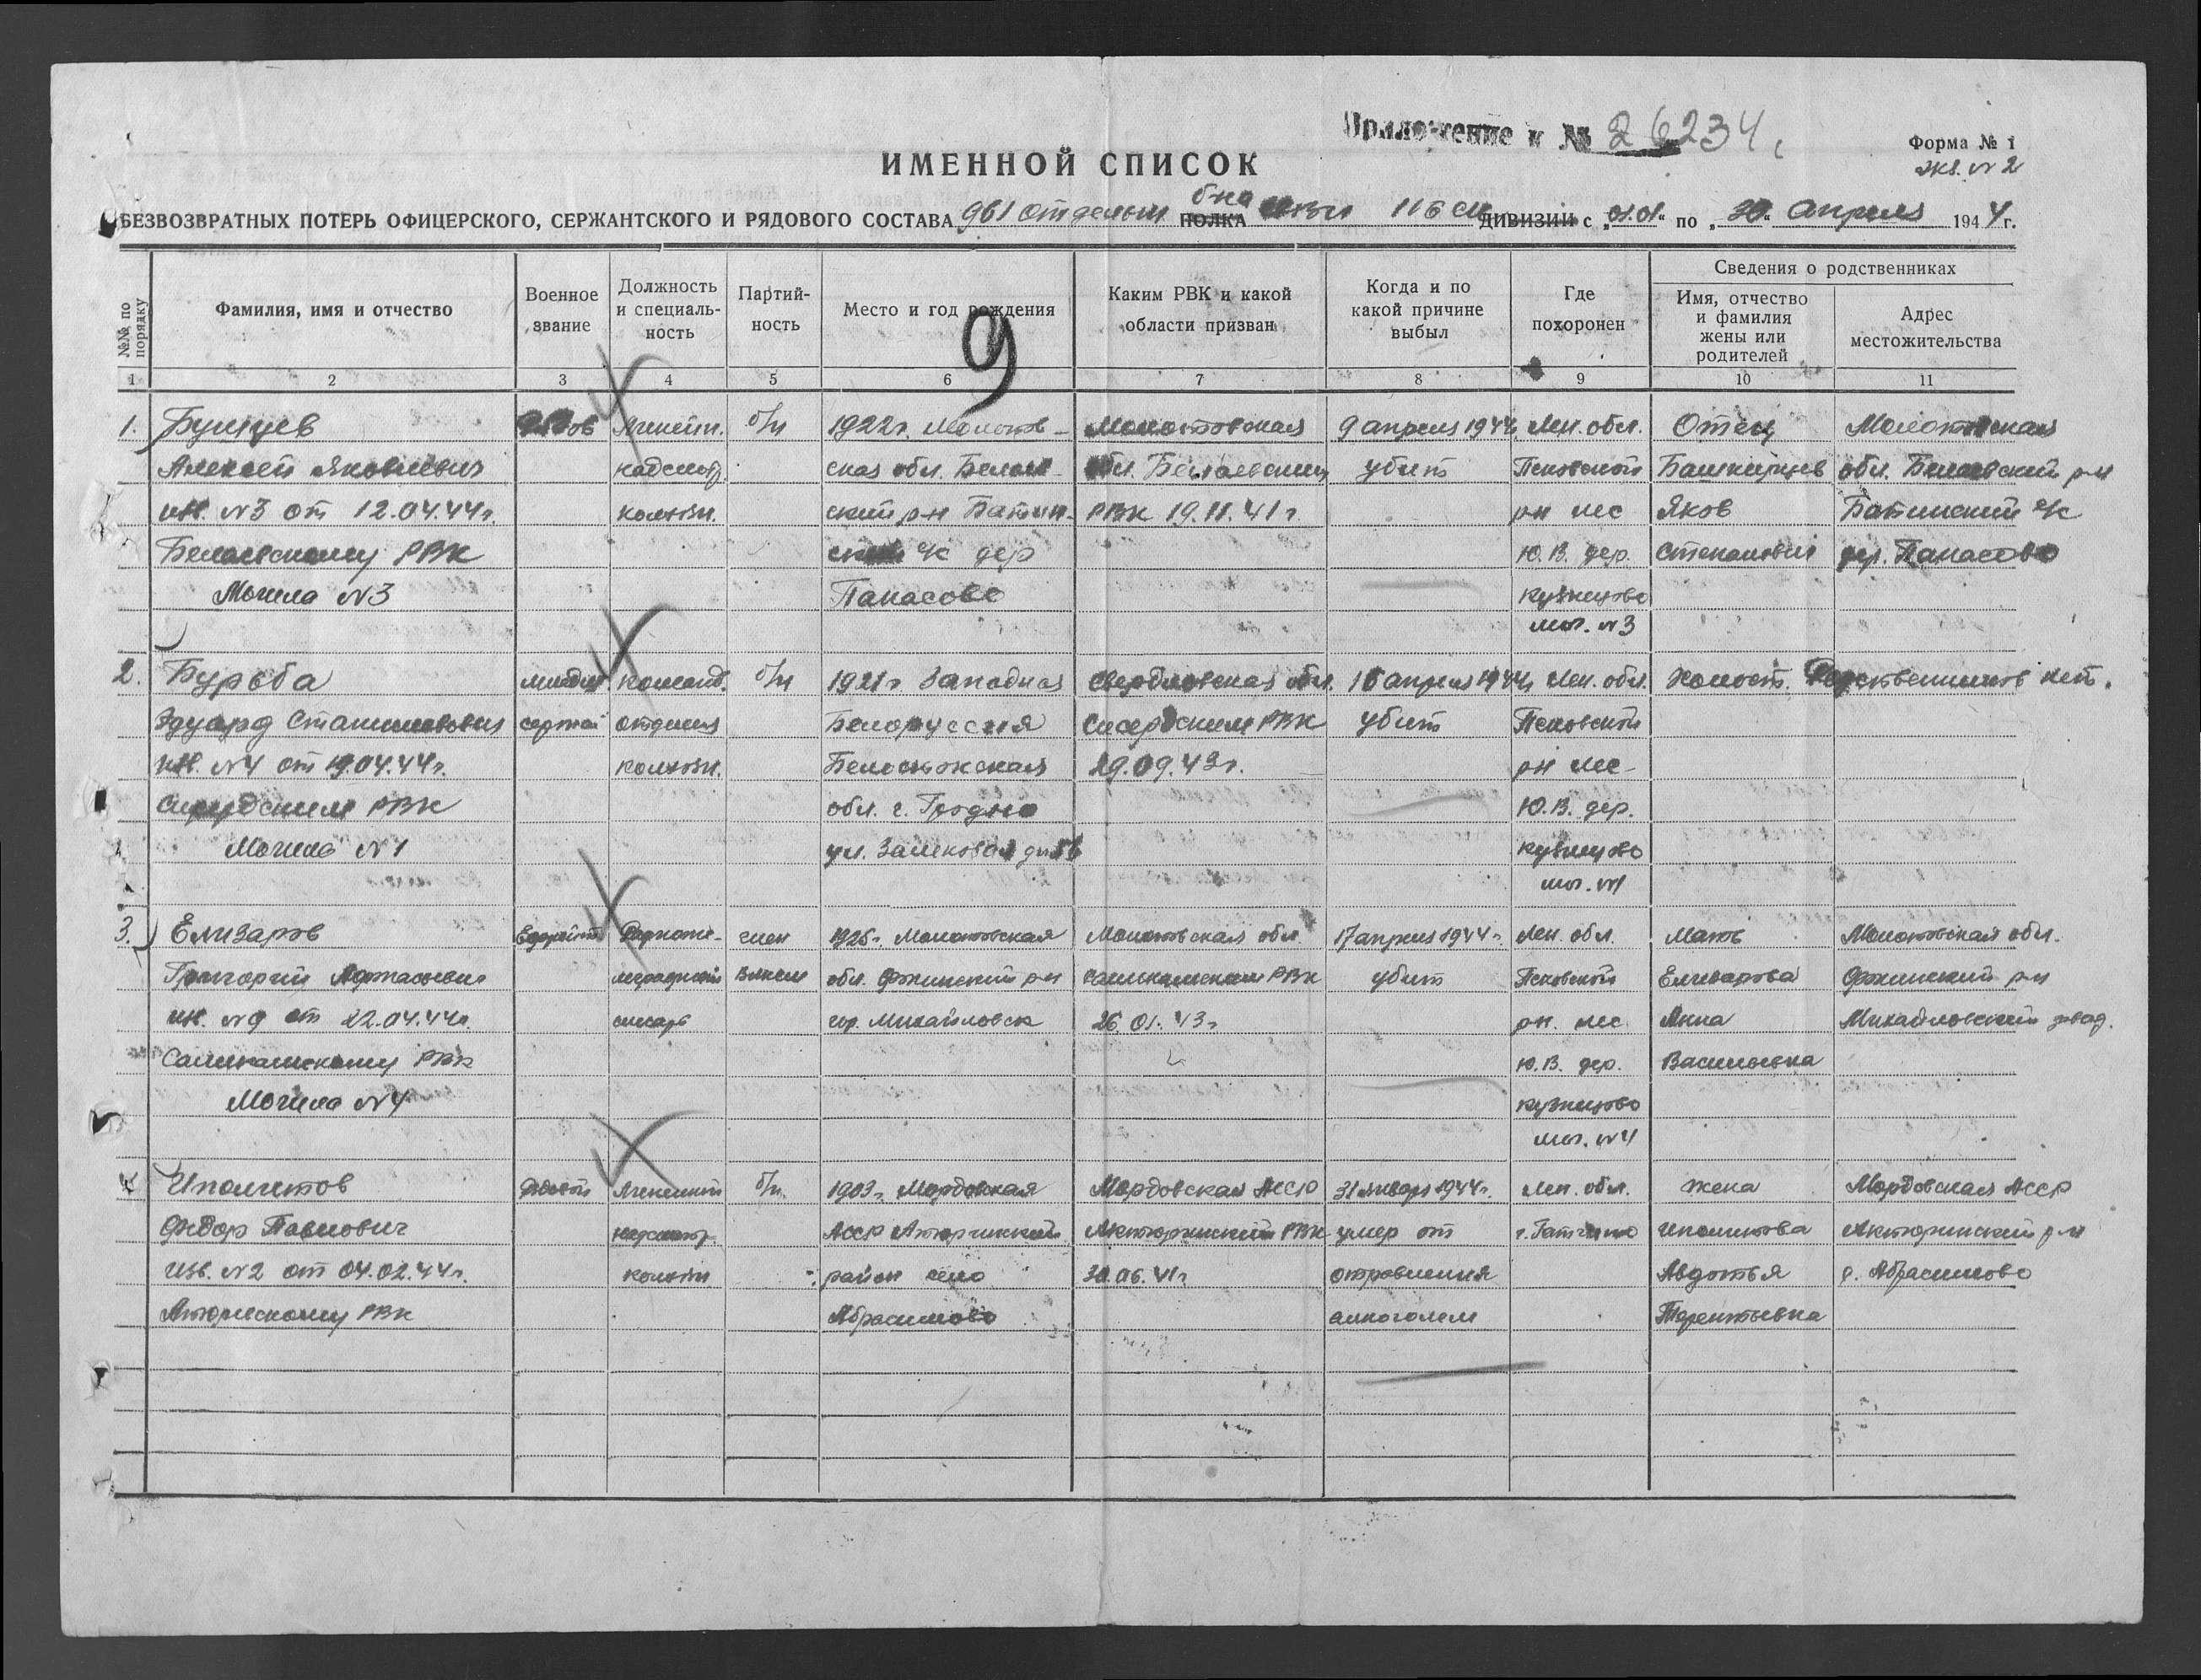 Приложение к № 26234
Форма № 1
экз. № 2
ИМЕННОЙ СПИСОК
БЕЗВОЗВРАТНЫХ ПОТЕРЬ ОФИЦЕРСКОГО, СЕРЖАНТСКОГО И РЯДОВОГО СОСТАВА 961 отдельн. б-на ПОЛКА связи 116 ск ДИВИЗИИ с „01.01“ по „30“ апреля 1944 г.
№№ по порядку
Фамилия, имя и отчество
Военное звание
Должность и специальность
Партийность
Место и год рождения
Каким РВК и какой области призван
Когда и по какой причине выбыл
Где похоронен
Сведения о родственниках
Имя, отчество и фамилия жены или родителей
Адрес местожительства
1 2 3 4 5 6 7 8 9 10 11
9
1. б/п 1922 г. Молотов- Молотовская 9 апреля 1944 Лен. обл. Отец Молотовская
Алексей Яковлевич надсмотр. ская обл. обл. убит Псковский Башкирцев обл. р-н
изв. №3 от 12.04.44 г. ский р-н Батин- РВК 19.11.41 г. р-н лес Яков Батинский с/с
РВК с/с дер Ю.В. дер. Степанович дер. Панасово
Могила №3 Панасово Кузнецово
мог. №3
2. Бурьба младш. команд. б/п 1921 г Западная Свердловская обл. апреля 1944 Лен. обл. Холост. Родственников нет.
Эдуард Станиславович сержан отделен Белоруссия РВК убит Псковский
изв. №4 от 19.04.44 г. Белостокская 29.09.43 г. р-н лес
РВК обл. г. Гродно Ю.В. дер.
Могила №1 ул. Замковая Кузнецово
мог. №1
3. Елизаров Ефрейтор член 1925 г. Молотовская Молотовская обл. 17 апреля 1944 г. Лен. обл. Мать Молотовская обл.
Григорий ВЛКСМ обл. р-н РВК убит Псковский Елизарова р-н
изв. №9 от 22.04.44 г. слесарь гор. Михайловск 26.01.43 г р-н. лес. Анна Михайловский завод.
РВК Ю.В. дер. Васильевна
Могила №4 Кузнецово
мог. №4
4. Иполитов рядовой Линейный б/п. 1903 г. Мордовская Мордовская АССР 31 января 1944 г. Лен. обл. жена Мордовская АССР
Федор Павлович надсмотр. АССР РВК умер от г. Гатчино Иполитова р-н
изв. №2 от 04.02.44 г. район село 30.06.41 г отравления Авдотья с. Абрасимово
РВК Абрасимово алкоголем Терентьевна